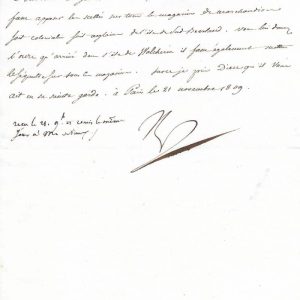 faire apposer les scellés sur tous les magasins de marchandises
soit coloniale soit anglaise de l'isle de Sud Beveland. vous lui donnez
l'ordre qu'arrivé dans l'isle de Walcheren il fasse également mettre
les scellés sur tous les magasins. Sur ce je prie Dieu qu'il vous
ait en sa sainte garde. à Paris le 21 novembre 1809
reçu le 24. 9bre et remis le même
Jour à